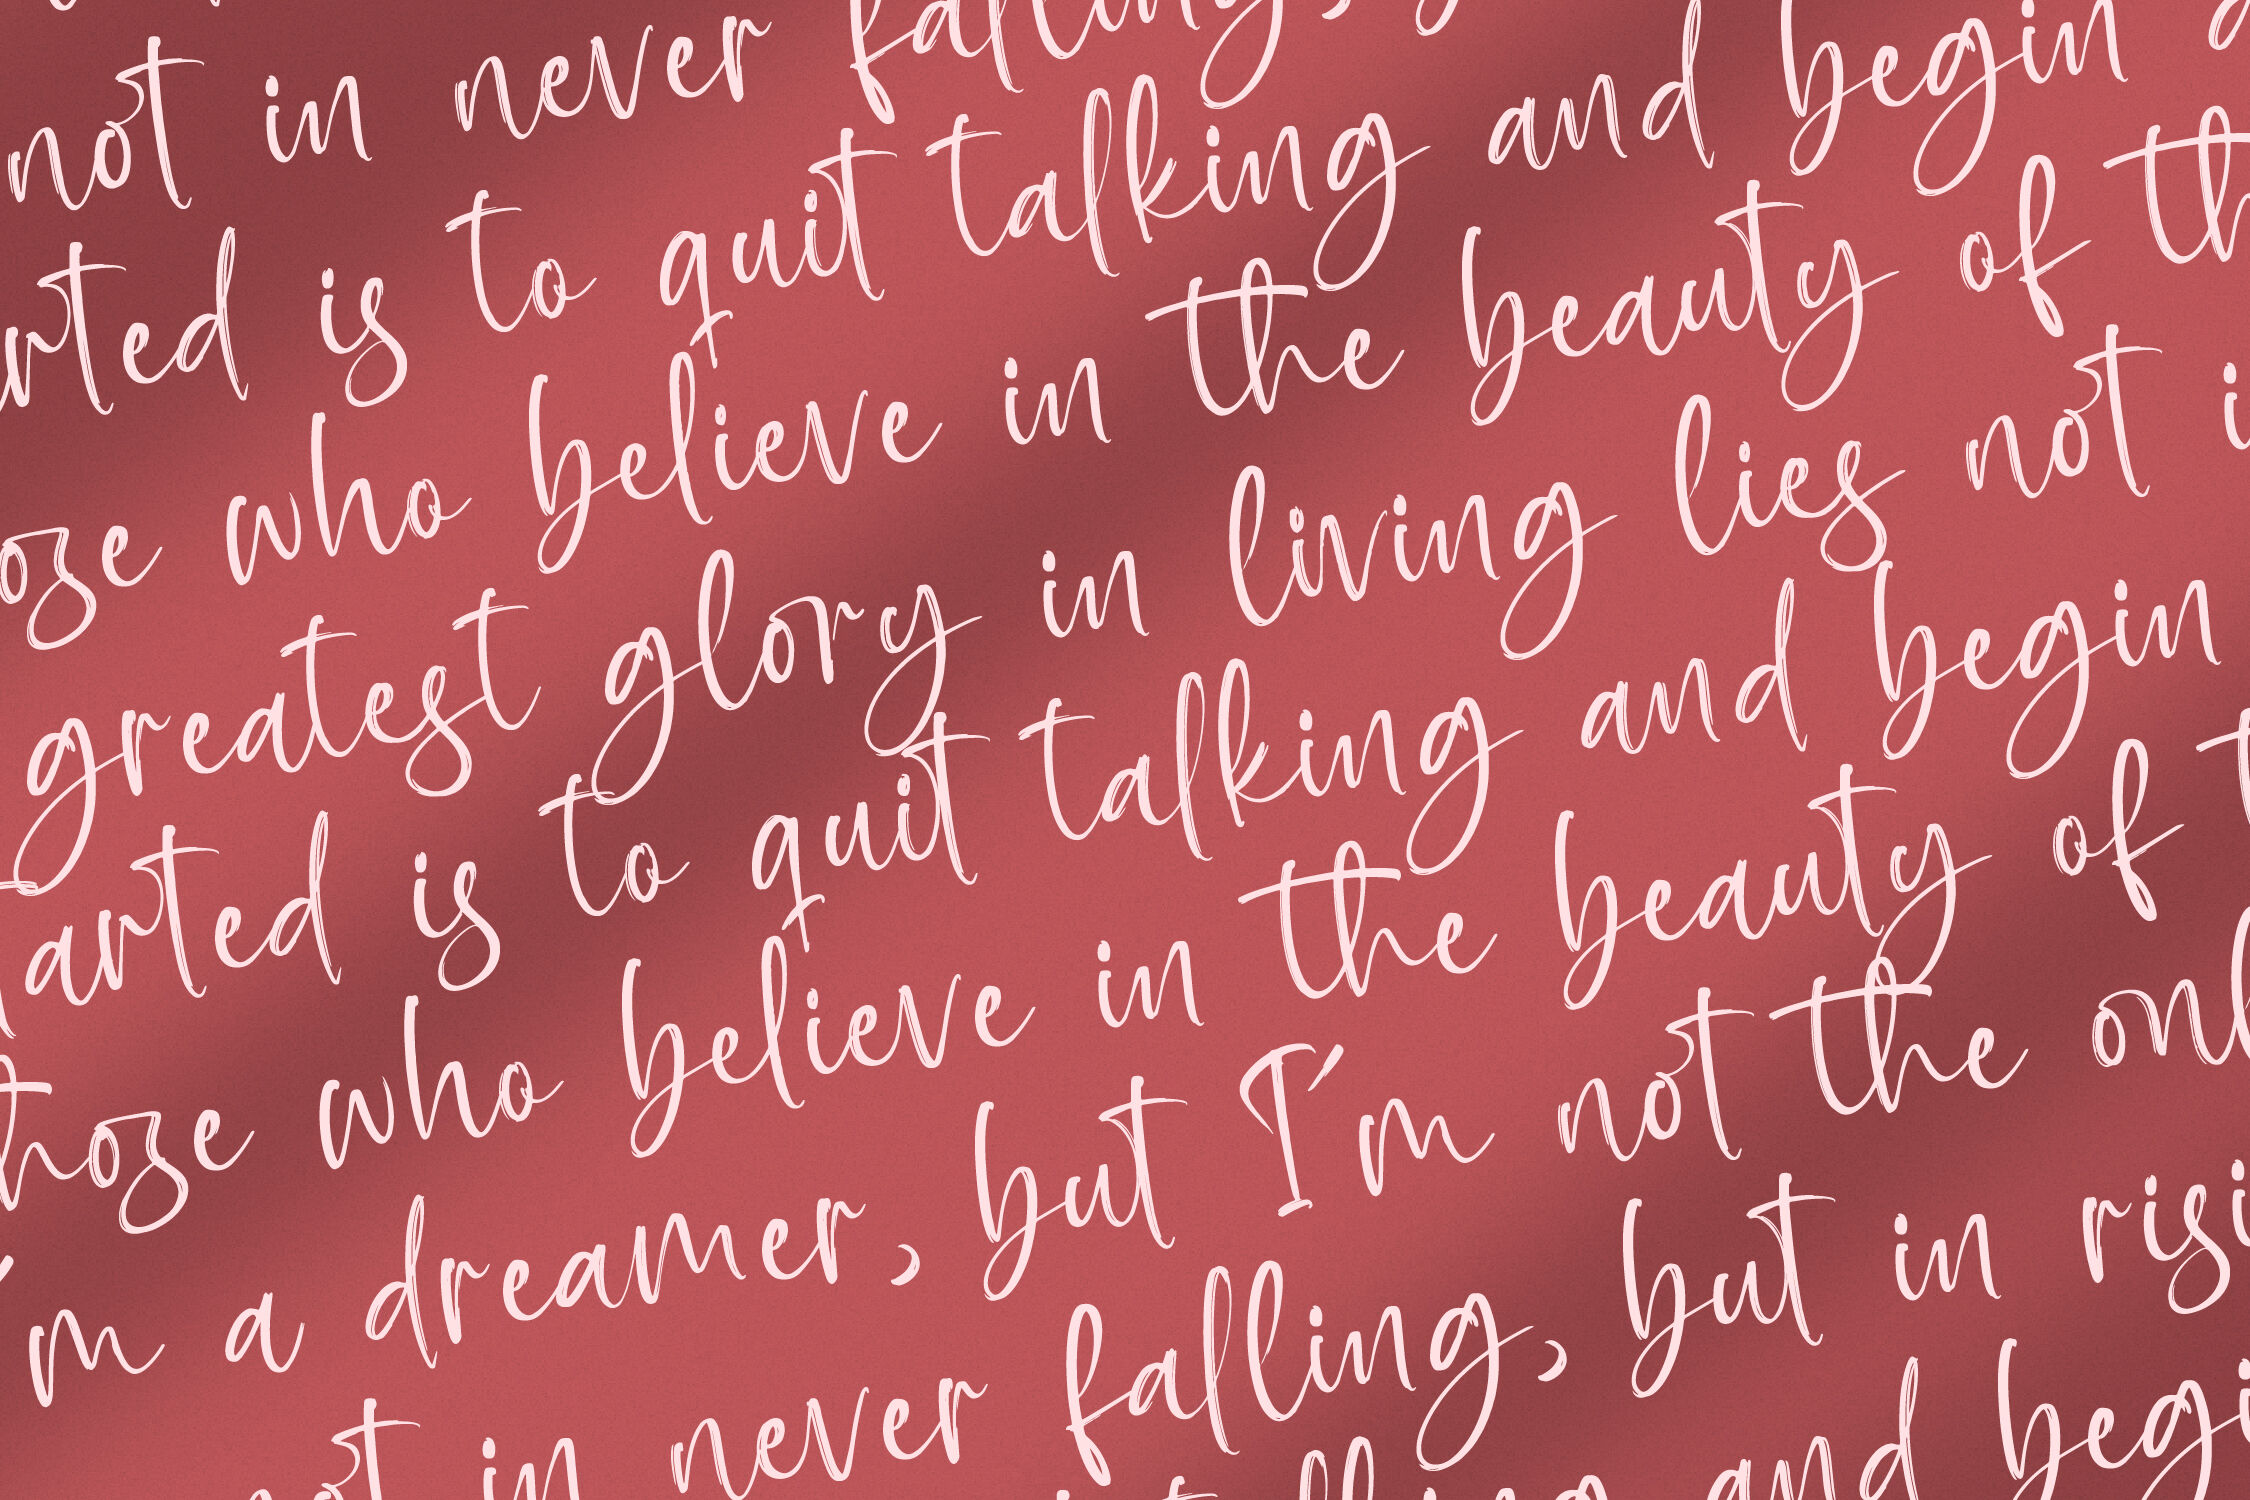 not in never falling,
is to quit talking and begin
who believe in the beauty of
greatest glory in living lies not
arted is to quit talking and begin
hose who believe in the beauty of
m a dreamer, but I'm not the onl
not in never falling, but in risi
and begi